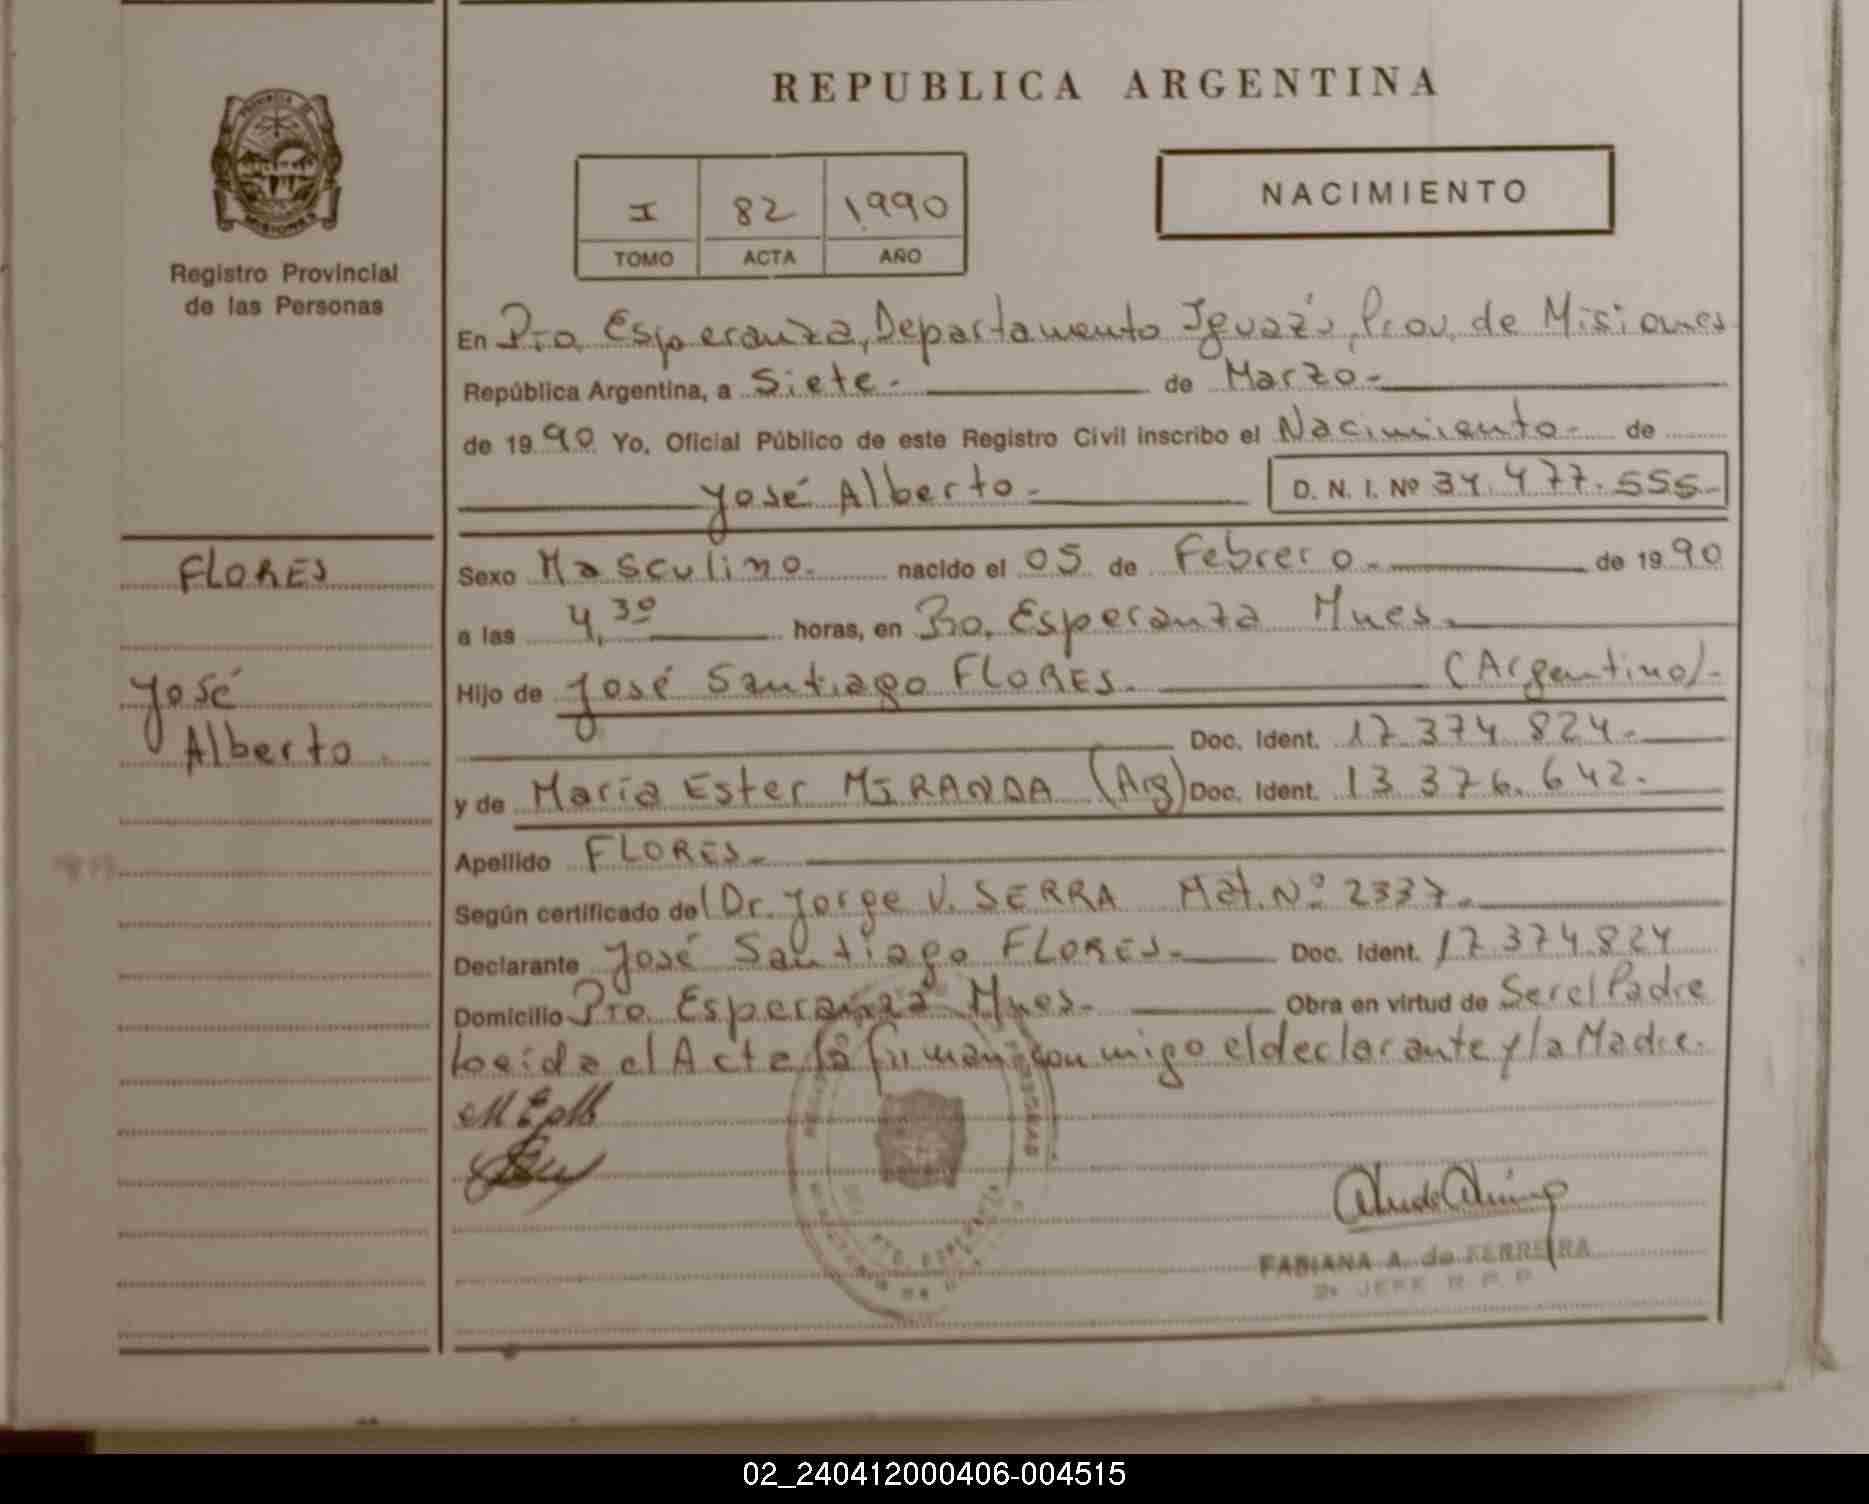 REPUBLICA ARGENTINA
NACIMIENTO
I 82 1.990
TOMO ACTA AÑO
Registro Provincial
de las Personas
En Pto. Esperanza, Departamento Iguazú, Prov. de Misiones
República Argentina, a Siete.- de Marzo.-
de 19 90 Yo, Oficial Público de este Registro Civil inscribo el Nacimiento- de
José Alberto.- D. N. I. Nº 34.477.555-
FLORES
José
Alberto.
Sexo Masculino.- nacido el 05 de Febrero.- de 19 90
a las 4,30 horas, en Bo. Esperanza Mnes.
Hijo de José Santiago FLORES.- (Argentino)-
Doc. Ident. 17.374.824.-
y de María Ester MIRANDA (Arg) Doc. Ident. 13.376.642.-
Apellido FLORES.-
Según certificado del Dr. Jorge V. SERRA Mat. Nº 2337.-
Declarante José Santiago FLORES.- Doc. Ident. 17.374.824
Domicilio Pto. Esperanza Mnes.- Obra en virtud de Ser el Padre
Leida el Acta la firman con migo el declarante y la Madre.
PTO. ESPERANZA
FABIANA A. de FERREIRA
JEFE R. P. P.
02_240412000406-004515